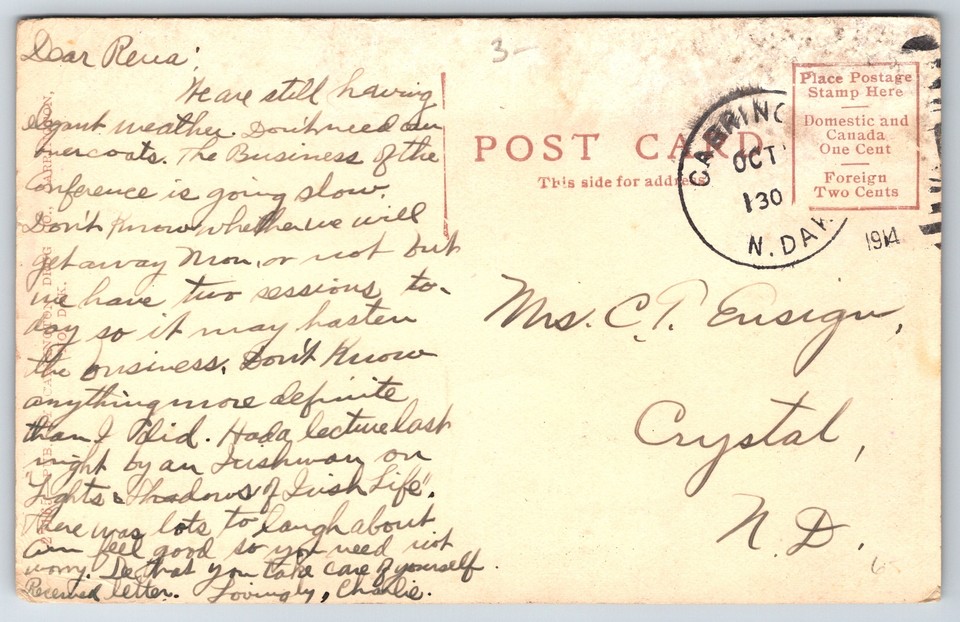 Dear Rena;
We are still having
elegant weather. Don't need our
overcoats. The Business of the
Conference is going slow.
Don't know whether we will
get away Mon. or not but
we have two sessions to-
day so it may hasten
the business. Don't know
anything more definite
than I did. Had a lecture last
night by an Irishman on
"Lights & Shadows of Irish Life".
There was lots to laugh about.
Am feel good so you need not
worry. Se that you take care of yourself.
Received letter. Lovingly, Charlie.
3-
POST CARD
This side for address
CARRING
OCT
130
N. DAK
1914
Place Postage
Stamp Here
Domestic and
Canada
One Cent
Foreign
Two Cents
Mrs. C. T. Ensign,
Crystal,
N. D.
6